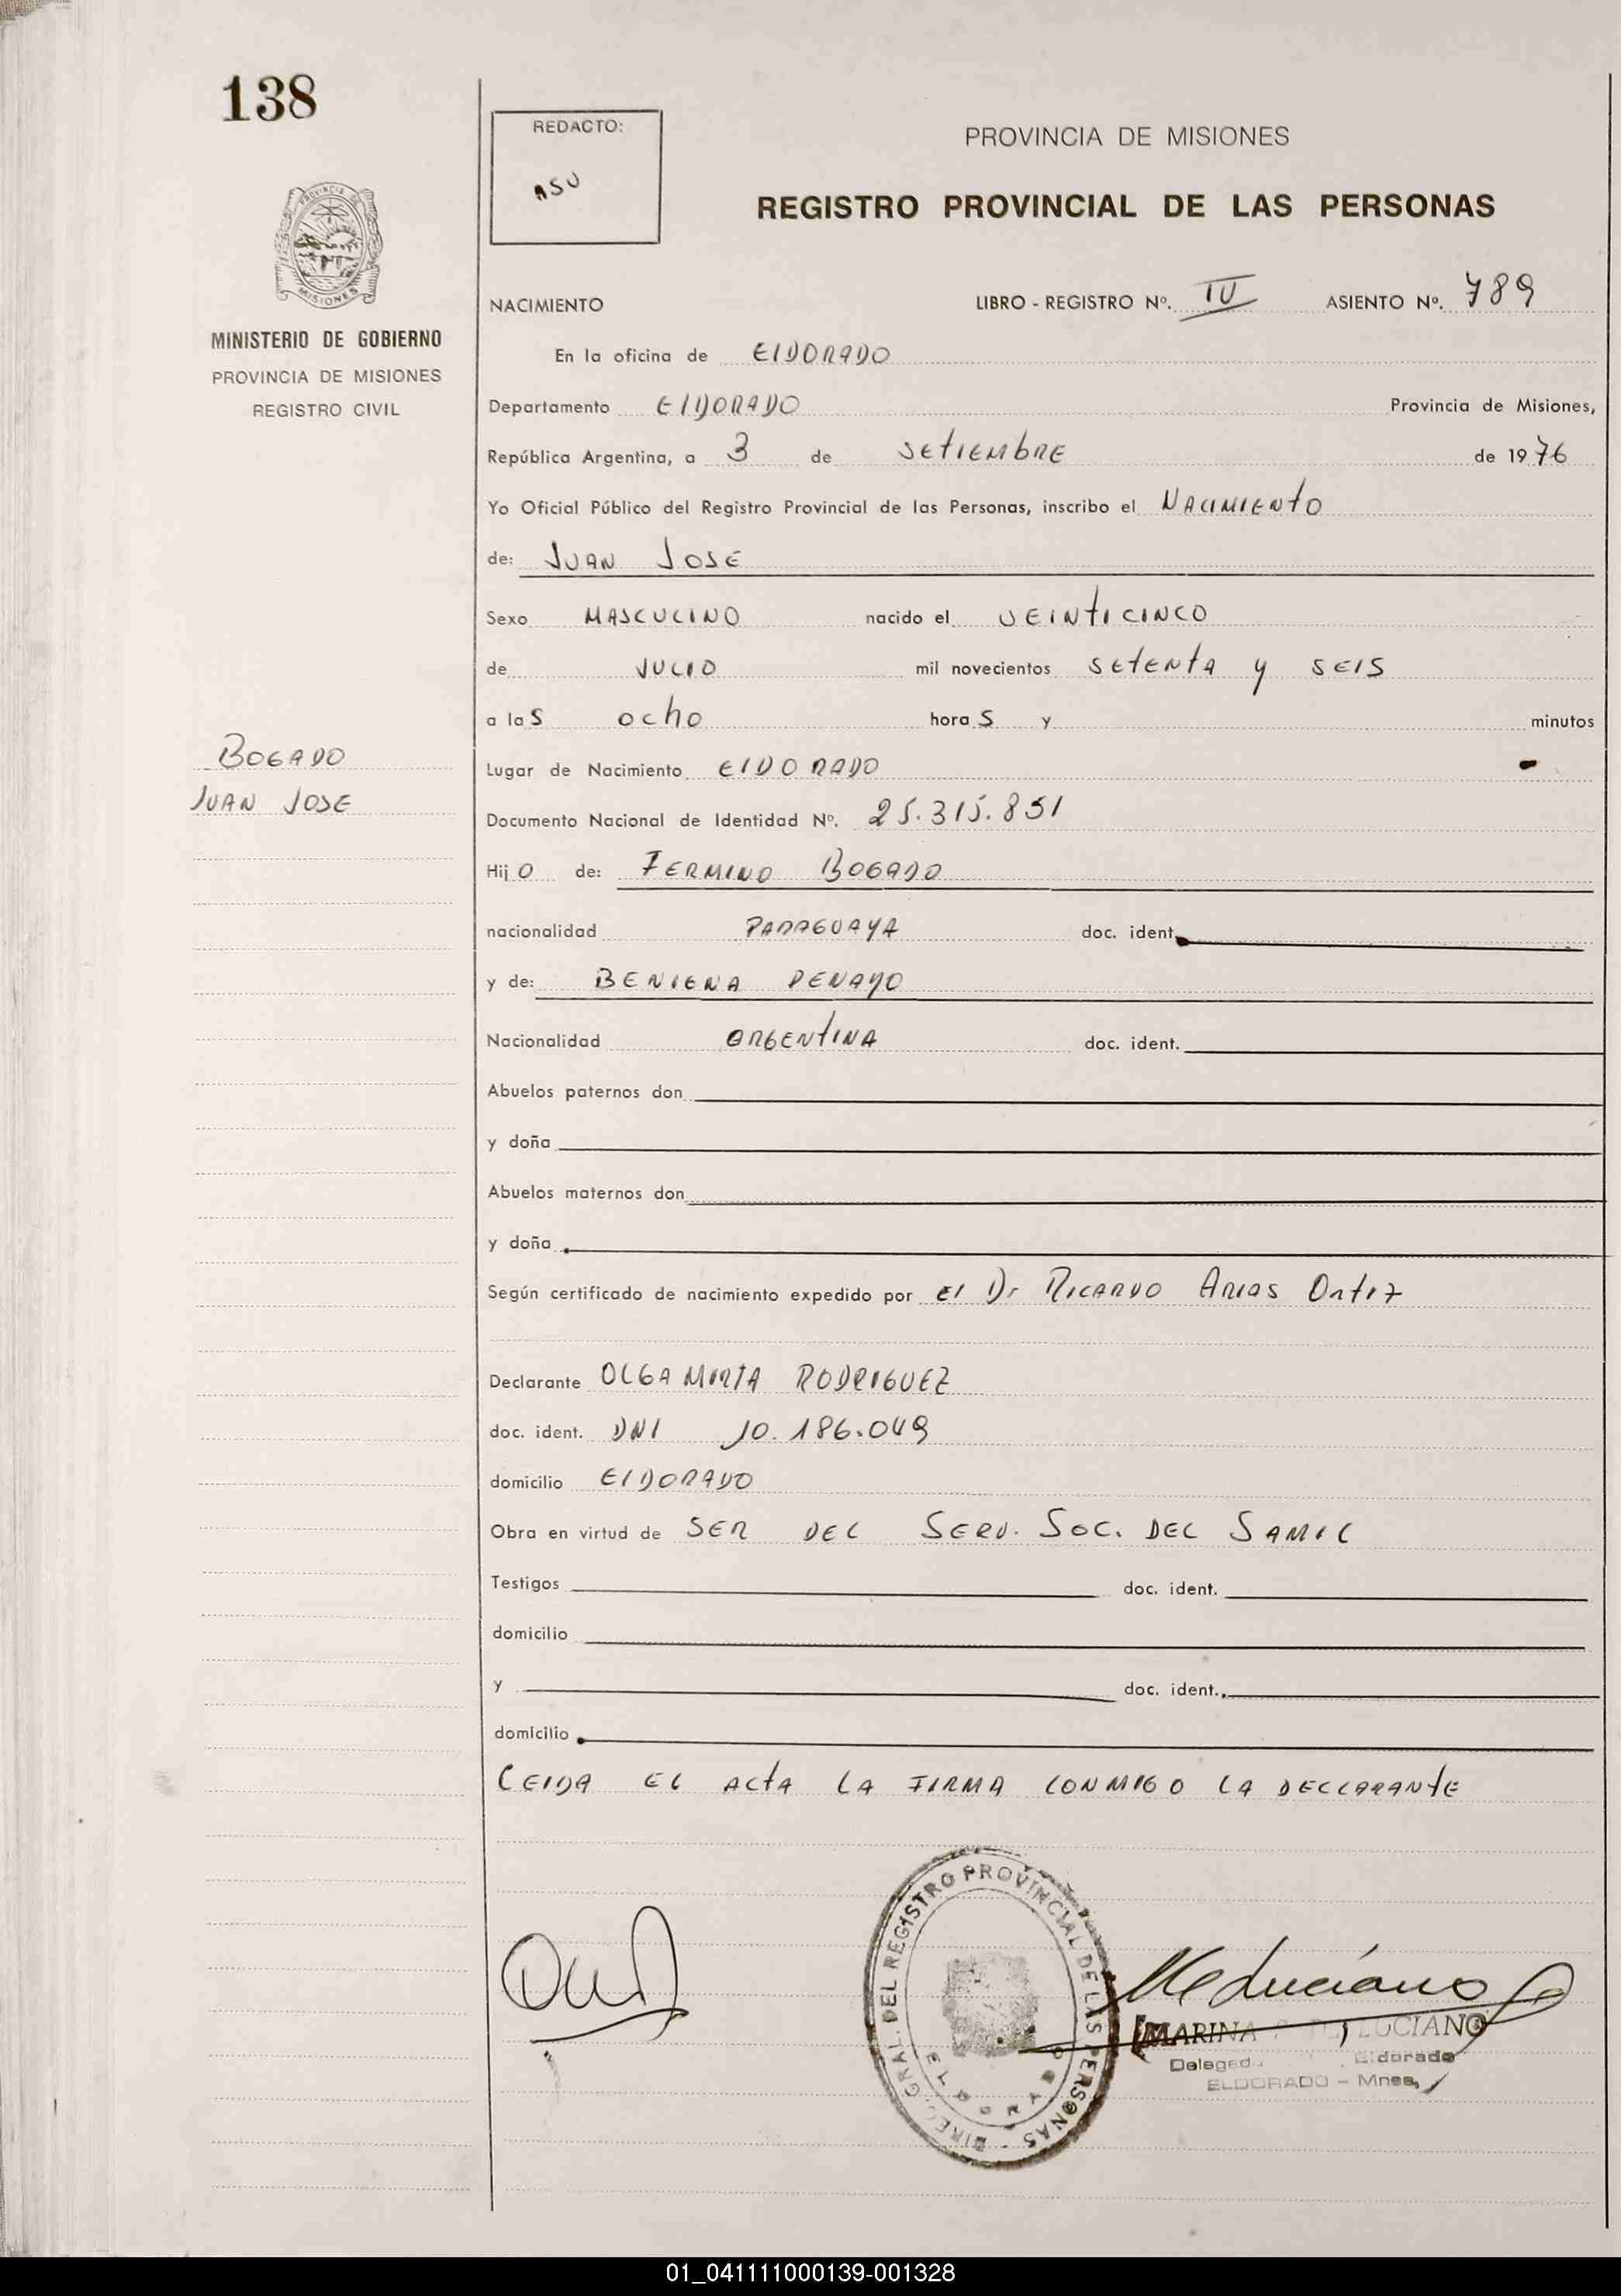 138
REDACTO:
ASU
PROVINCIA DE MISIONES
REGISTRO PROVINCIAL DE LAS PERSONAS
PROVINCIA DE
MISIONES
MINISTERIO DE GOBIERNO
PROVINCIA DE MISIONES
REGISTRO CIVIL
NACIMIENTO LIBRO - REGISTRO Nº. IV ASIENTO Nº. 789
En la oficina de ElDORADO
Departamento ElDORADO Provincia de Misiones,
República Argentina, a 3 de SEtIEMbRE de 1976
Yo Oficial Público del Registro Provincial de las Personas, inscribo el NACIMIENtO
de: JUAN JOSE
Sexo MASCULINO nacido el VEINtICINCO
de JULIO mil novecientos SEtENtA y SEIS
a las ocho horas y minutos
BOGADO
JUAN JOSE
Lugar de Nacimiento ElDORADO
Documento Nacional de Identidad Nº. 25.315.851
Hijo de: FERMINO BOGADO
nacionalidad PARAGUAYA doc. ident.
y de: BENIGNA PENAYO
Nacionalidad ARGENtINA doc. ident.
Abuelos paternos don
y doña
Abuelos maternos don
y doña
Según certificado de nacimiento expedido por El Dr RICARDO ARIAS ORtIZ
Declarante OLGA MIRTA RODRIGUEZ
doc. ident. DNI 10.186.049
domicilio ElDORADO
Obra en virtud de SER DEL SERV. SOC. DEL SAMIC
Testigos doc. ident.
domicilio
y doc. ident.
domicilio
LEIDA EL ACtA LA FIRMA CONMIGO LA DECLARANtE
DIREC. GRAL. DEL REGISTRO PROVINCIAL DE LAS PERSONAS
ELDORADO
MARINA LUCIANO
Delegad Eldorado
ELDORADO - Mnes,
01_041111000139-001328